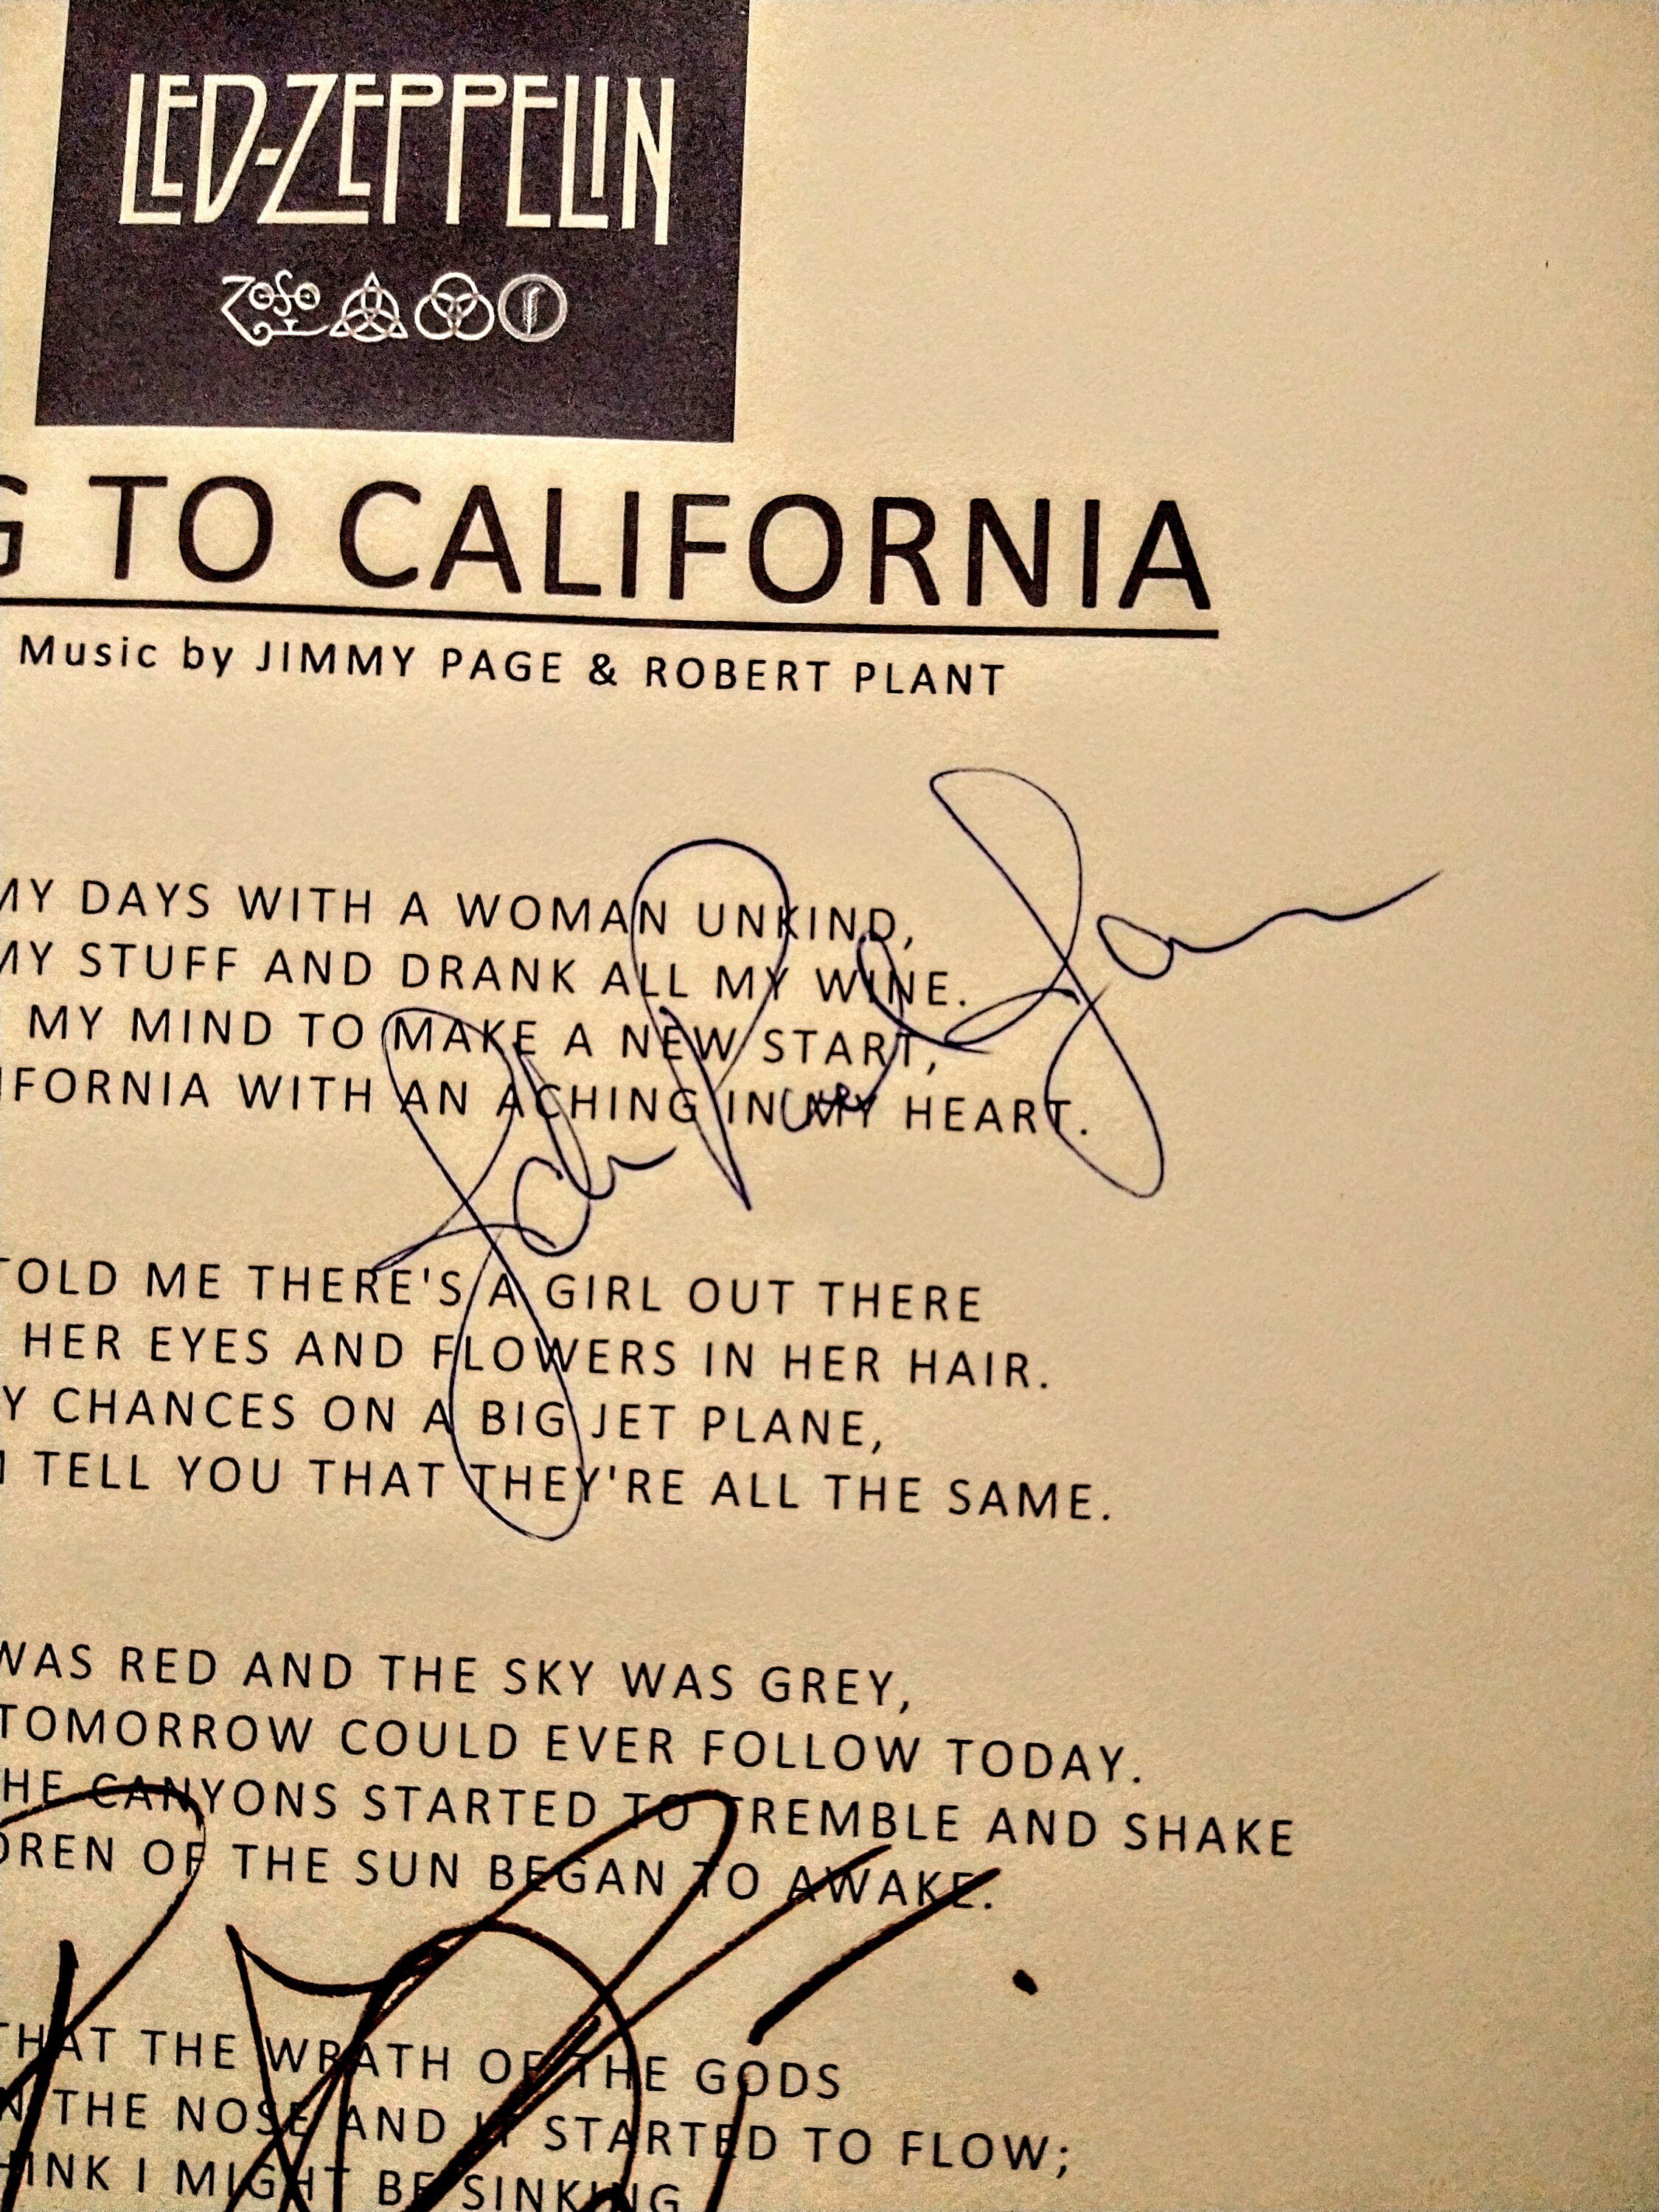 LED-ZEPPELIN
ZOSO
G TO CALIFORNIA
Music by JIMMY PAGE & ROBERT PLANT
MY DAYS WITH A WOMAN UNKIND,
MY STUFF AND DRANK ALL MY WINE.
MY MIND TO MAKE A NEW START,
IFORNIA WITH AN ACHING IN MY HEART.
John Paul Jones
TOLD ME THERE'S A GIRL OUT THERE
HER EYES AND FLOWERS IN HER HAIR.
Y CHANCES ON A BIG JET PLANE,
TELL YOU THAT THEY'RE ALL THE SAME.
WAS RED AND THE SKY WAS GREY,
TOMORROW COULD EVER FOLLOW TODAY.
HE CANYONS STARTED TO TREMBLE AND SHAKE
DREN OF THE SUN BEGAN TO AWAKE.
THAT THE WRATH OF THE GODS
N THE NOSE AND IT STARTED TO FLOW;
HINK I MIGHT BE SINKING